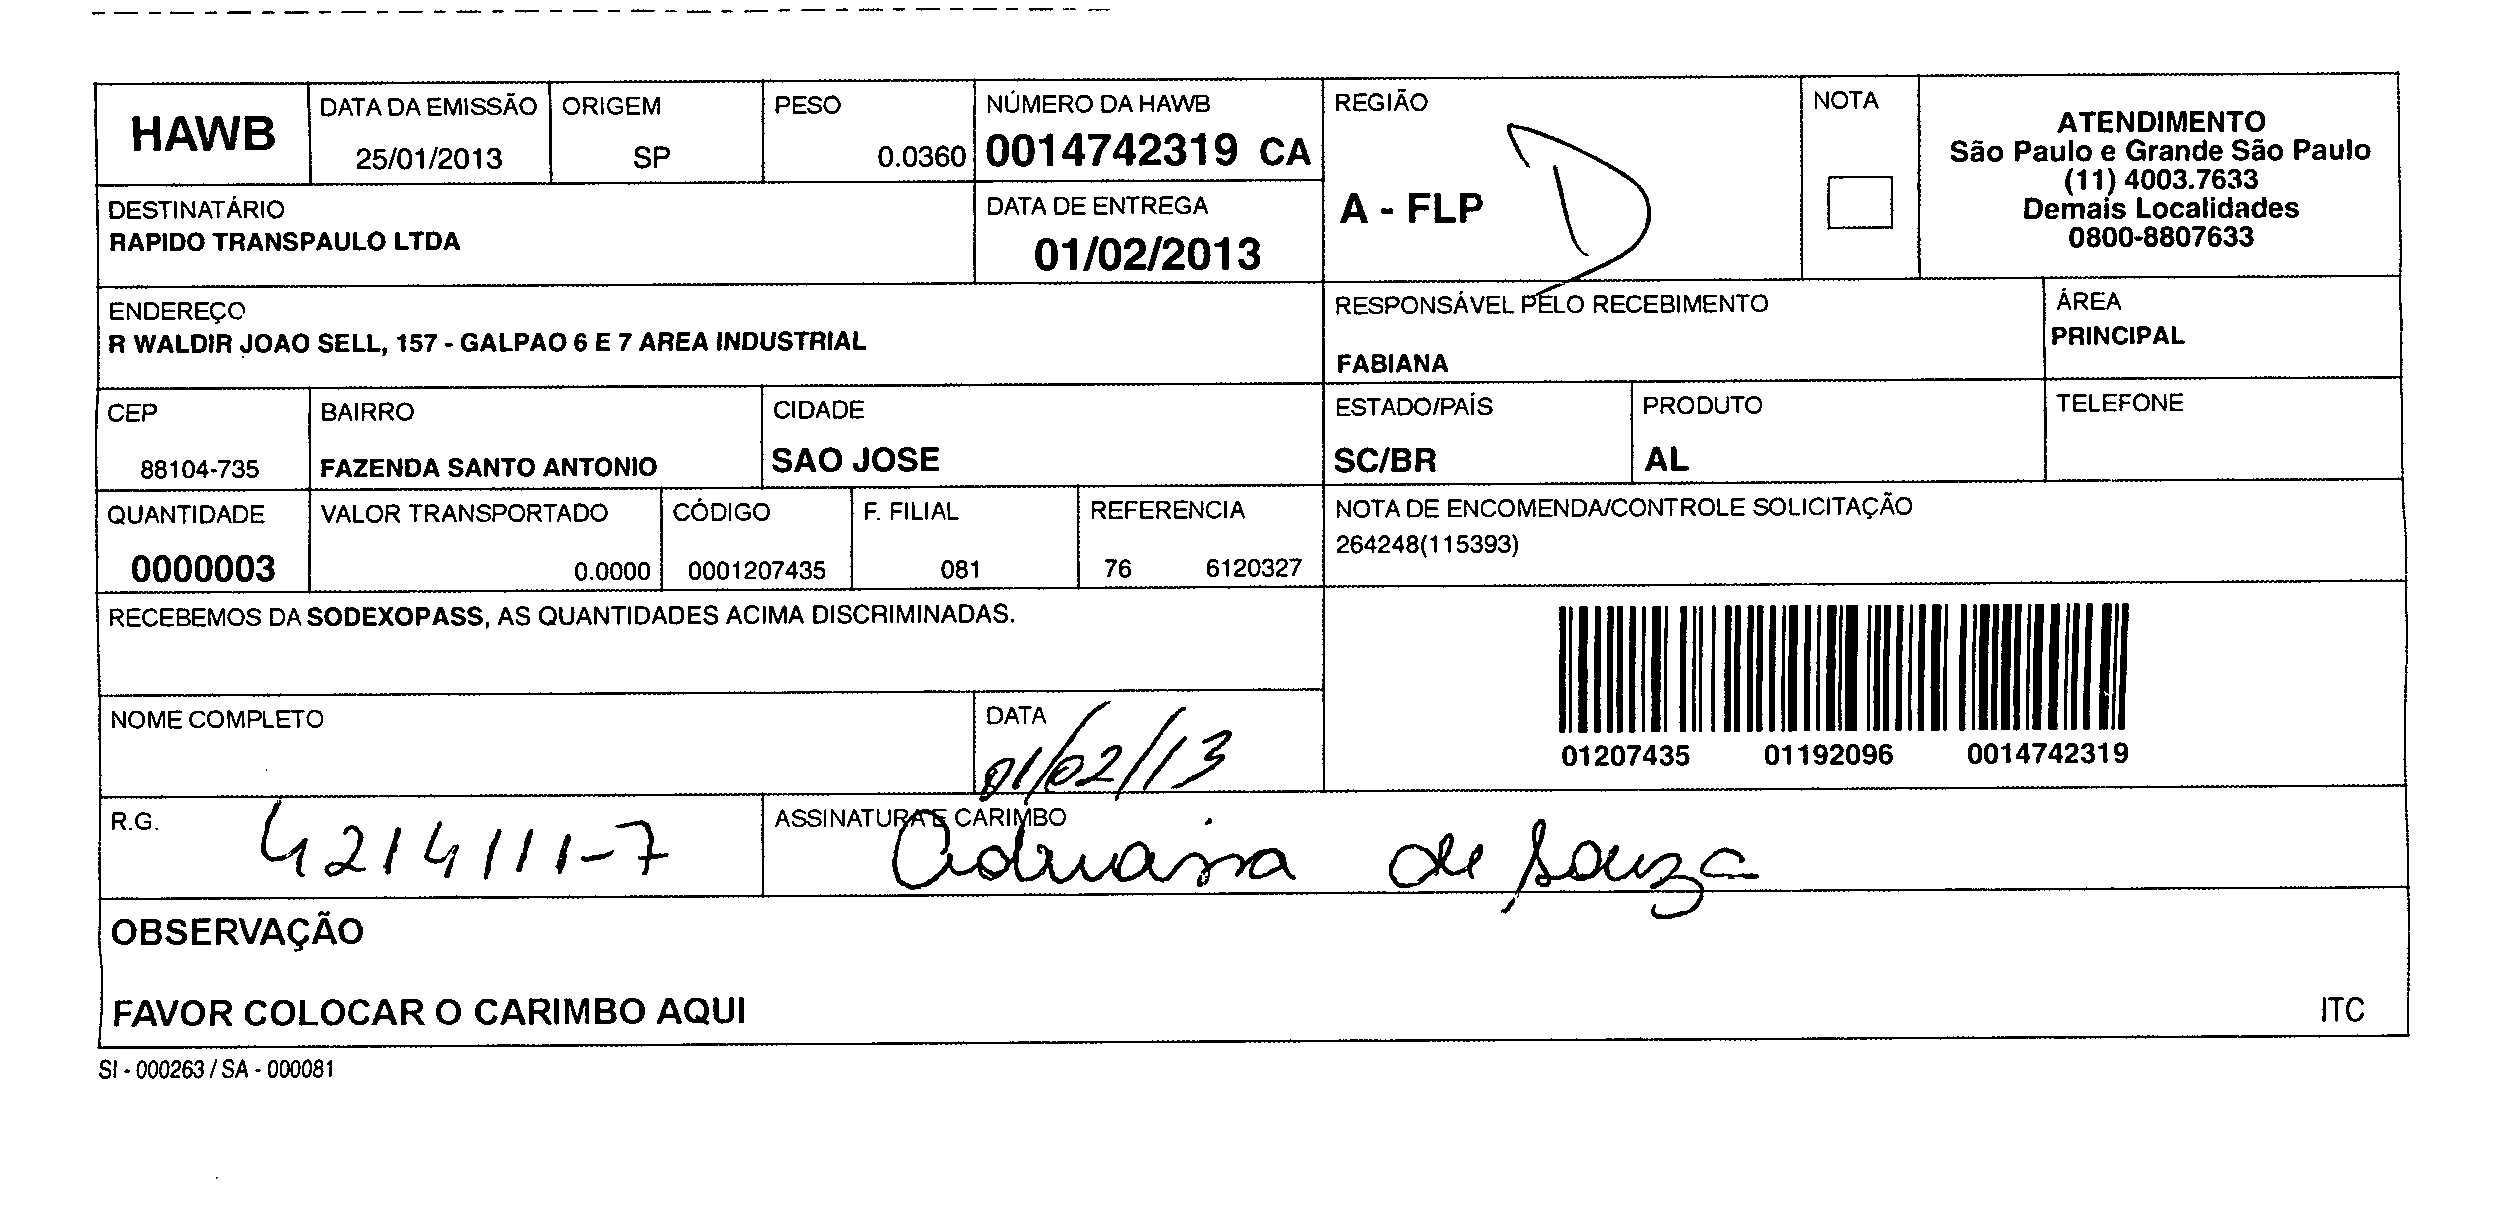 HAWB
DATA DA EMISSÃO
25/01/2013
ORIGEM
SP
PESO
0.0360
NÚMERO DA HAWB
0014742319 CA
REGIÃO
A - FLP
NOTA
ATENDIMENTO
São Paulo e Grande São Paulo
(11) 4003.7633
Demais Localidades
0800-8807633
DESTINATÁRIO
RAPIDO TRANSPAULO LTDA
DATA DE ENTREGA
01/02/2013
ENDEREÇO
R WALDIR JOAO SELL, 157 - GALPAO 6 E 7 AREA INDUSTRIAL
RESPONSÁVEL PELO RECEBIMENTO
FABIANA
ÁREA
PRINCIPAL
CEP
88104-735
BAIRRO
FAZENDA SANTO ANTONIO
CIDADE
SAO JOSE
ESTADO/PAÍS
SC/BR
PRODUTO
AL
TELEFONE
QUANTIDADE
0000003
VALOR TRANSPORTADO
0.0000
CÓDIGO
0001207435
F. FILIAL
081
REFERENCIA
76 6120327
NOTA DE ENCOMENDA/CONTROLE SOLICITAÇÃO
264248(115393)
RECEBEMOS DA SODEXOPASS, AS QUANTIDADES ACIMA DISCRIMINADAS.
01207435 01192096 0014742319
NOME COMPLETO
DATA
01/02/13
R.G.
4214111-7
ASSINATURA E CARIMBO
de Souza
OBSERVAÇÃO
FAVOR COLOCAR O CARIMBO AQUI
ITC
SI - 000263 / SA - 000081